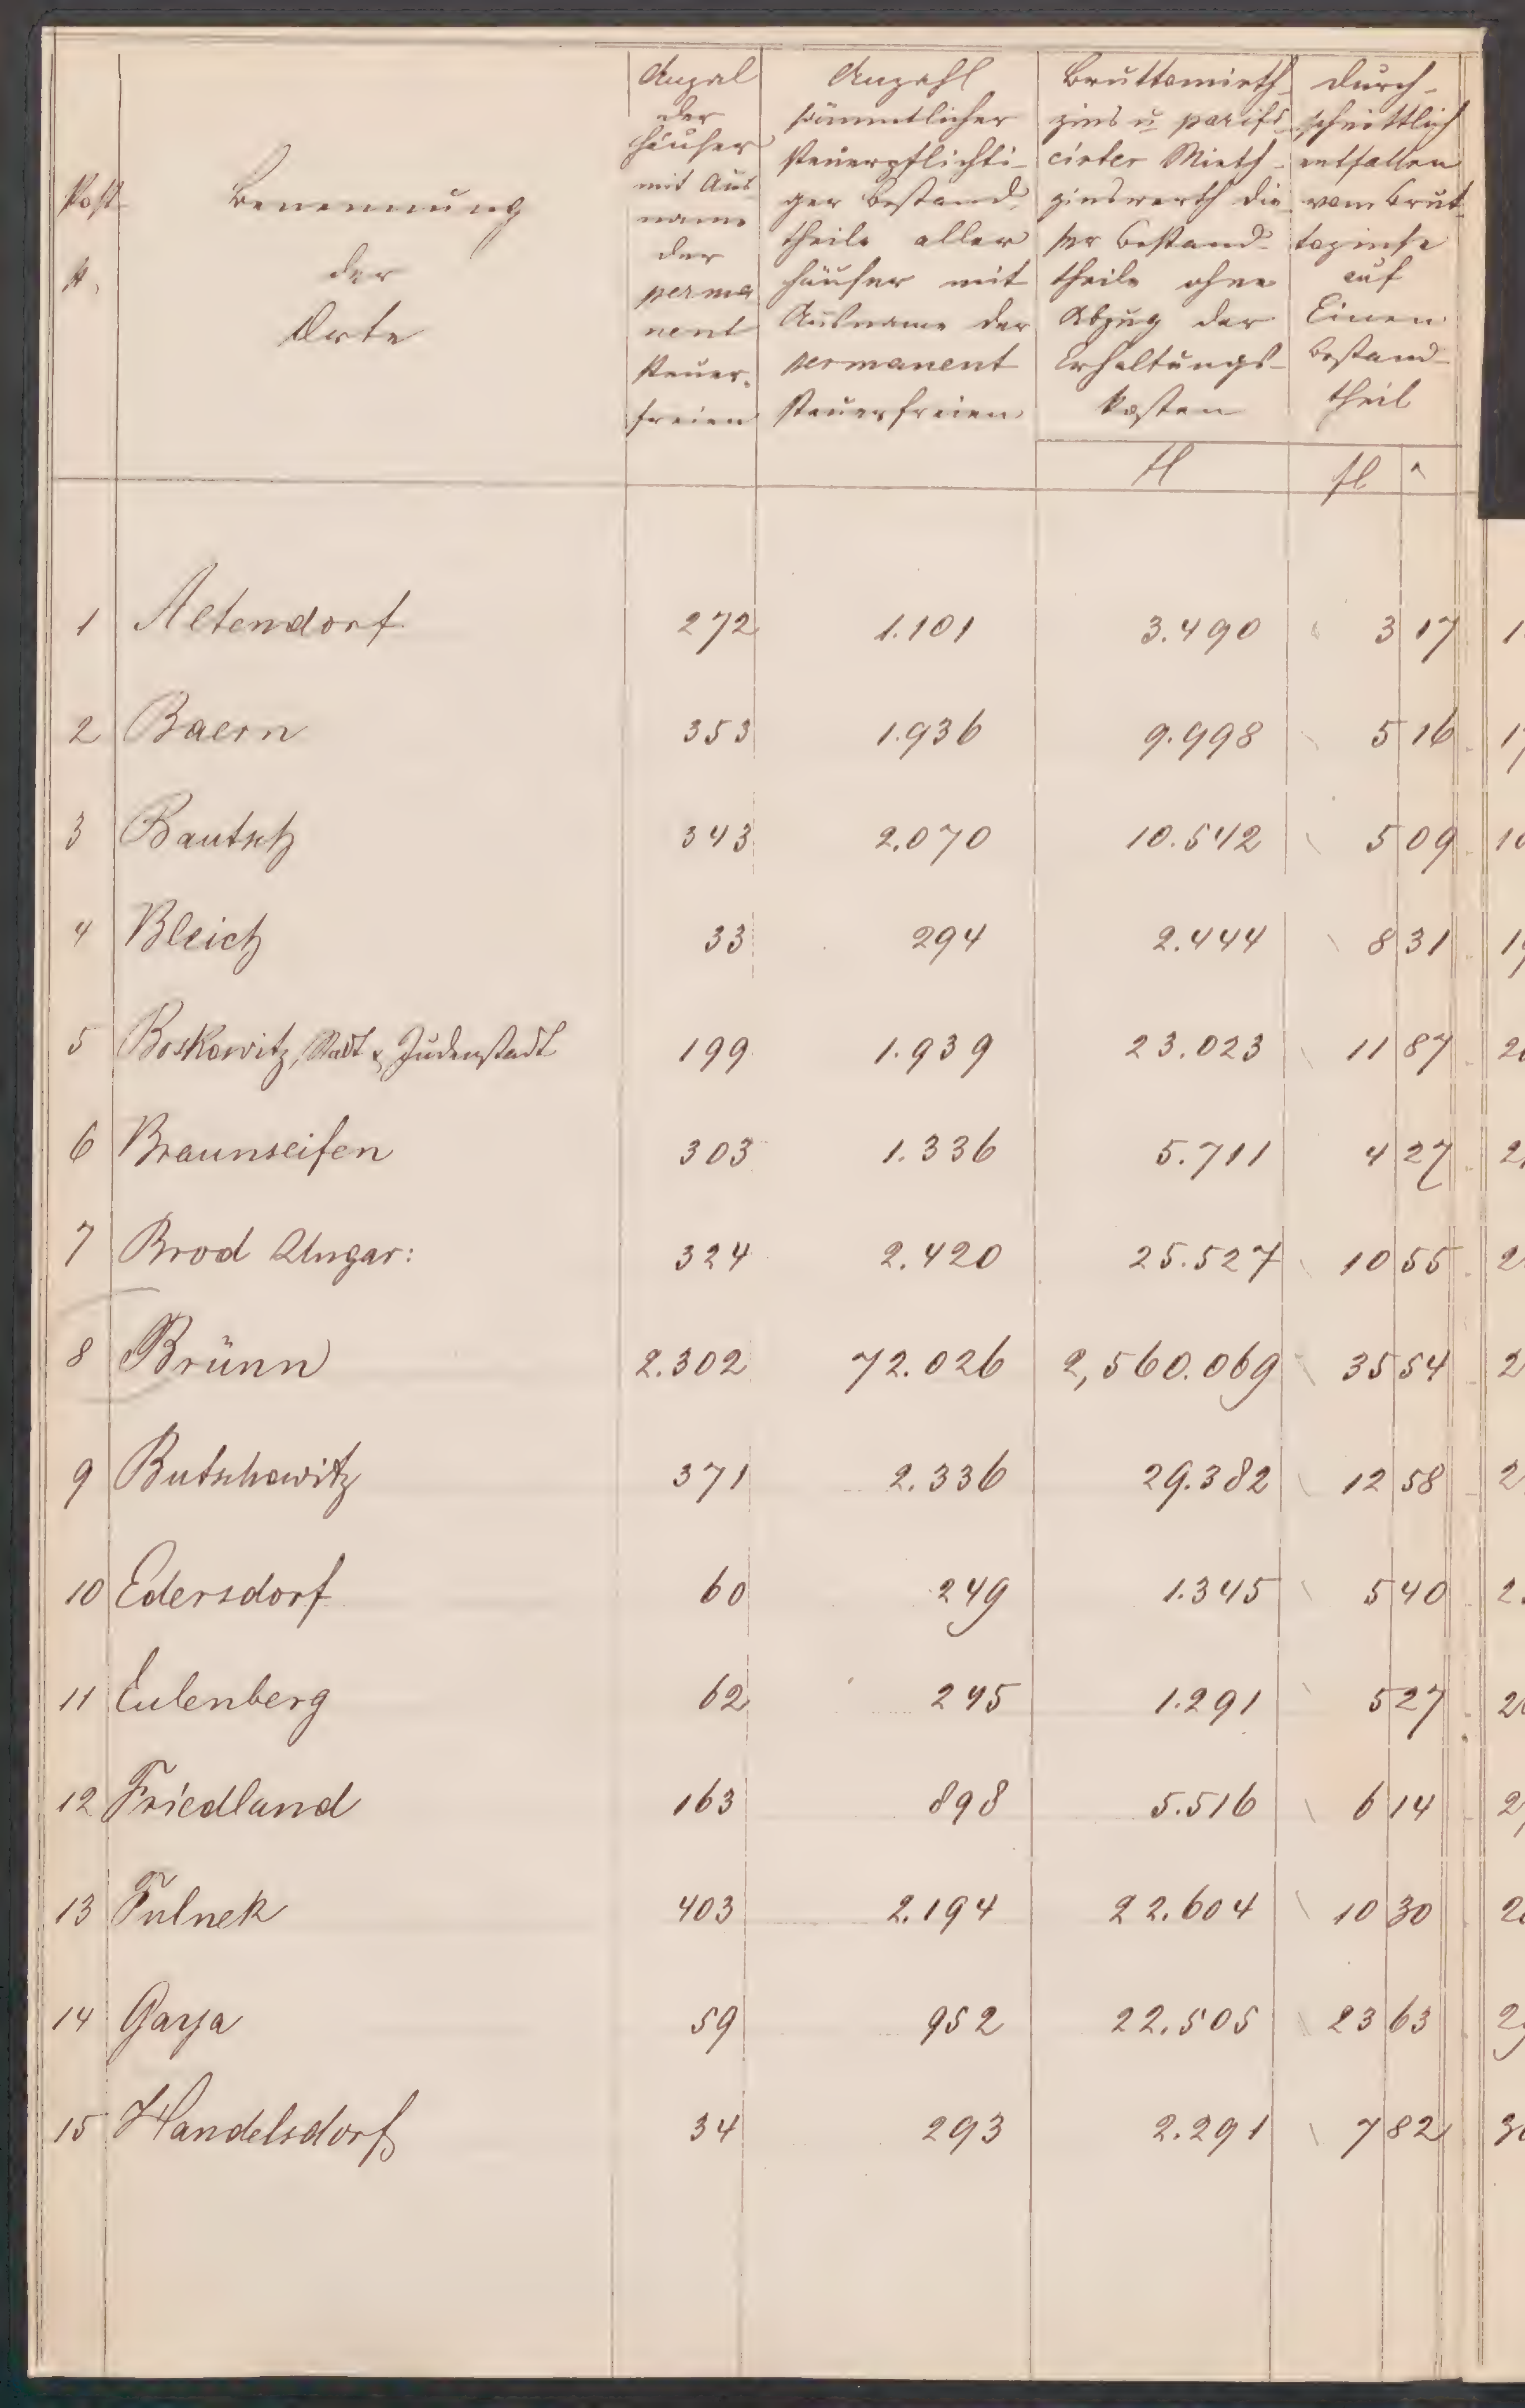 Post
N.
Benennung
der
Orte
Anzal
der
Häuser
mit Aus
name
der
perma
nent
steuer-
freien
Anzahl
sämmtlicher
steuerpflichti-
ger Bestand-
theile aller
Häuser mit
Ausname der
permanent
steuerfreien
Bruttomieth-
zins u parifi-
cirter Mieth-
zinswerth die-
ser Bestand-
theile ohne
Abzug der
Erhaltungs-
kosten
Durch-
schnittlich
entfallen
vom Brut-
tozinse
auf
Einen
Bestand-
theil
fl fl
1 Altendorf 272 1.101 3.490 3 17
2 Baern 353 1.936 9.998 5 16
3 Bautsch 343 2.070 10.542 5 09
4 Bleich 33 294 2.444 8 31
5 Boskowitz, Stadt & Judenstadt 199 1.939 23.023 11 87
6 Braunseifen 303 1.336 5.711 4 27
7 Brod Ungar: 324 2.420 25.527 10 55
8 Brünn 2.302 72.026 2,560.069 35 54
9 Butschowitz 371 2.336 29.382 12 58
10 Edersdorf 60 249 1.345 5 40
11 Eulenberg 62 245 1.291 5 27
12 Friedland 163 898 5.516 6 14
13 Fulnek 403 2.194 22.604 10 30
14 Gaya 59 952 22.505 23 63
15 Handelsdorf 34 293 2.291 7 82